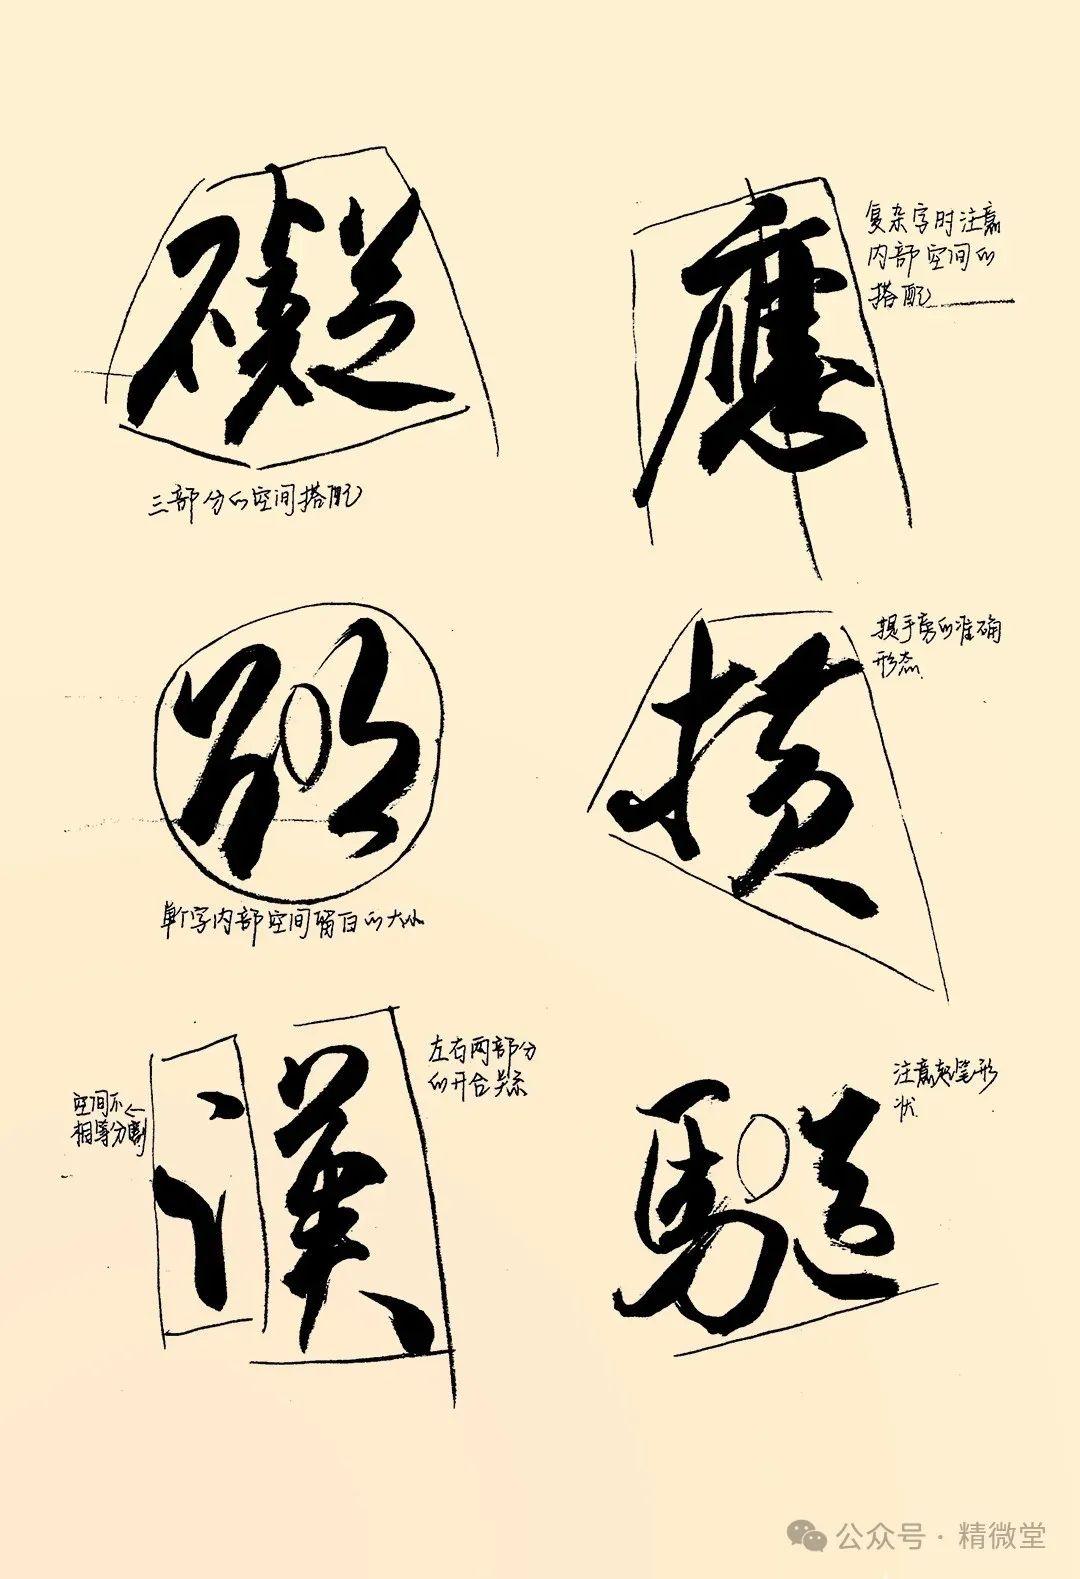 礙
三部分的空间搭配
應
复杂字时注意
内部空间的
搭配
单字内部空间留白的大小
横
提手旁的准确
形态
漢
空间不
相等分割
左右两部分
的开合关系
注意起笔形
状
公众号·精微堂